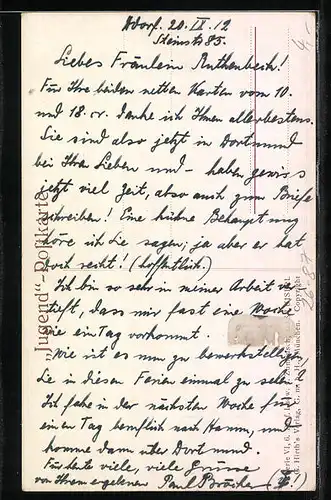 Ddorf. 20. IX. 12
Steinstr 85.
Liebes Fräulein Ruthenbeck!
Für Ihre beiden netten Karten vom 10.
und 18. cr. danke ich Ihnen allerbestens.
Sie sind also jetzt in Dortmund
bei Ihren Lieben und - haben gewiss
jetzt viel Zeit, also auch zum Briefe
schreiben! Eine kühne Behauptung
höre ich Sie sagen, ja aber er hat
doch recht! (hoffentlich.)
Ich bin so sehr in meiner Arbeit ver
tieft, dass mir fast eine Woche
wie ein Tag vorkommt.
Wie ist es nun zu bewerkstelligen,
Sie in diesen Ferien einmal zu sehen?
Ich fahre in der nächsten Woche für
einen Tag beruflich nach Hamm, und
komme dann über Dortmund.
Für heute viele, viele Grüsse
von Ihrem ergebenen Paul
"Jugend"-Postkarte
Serie VI,
G. Hirth's Verlag, G. m. b. H., München. Copyright
26-87